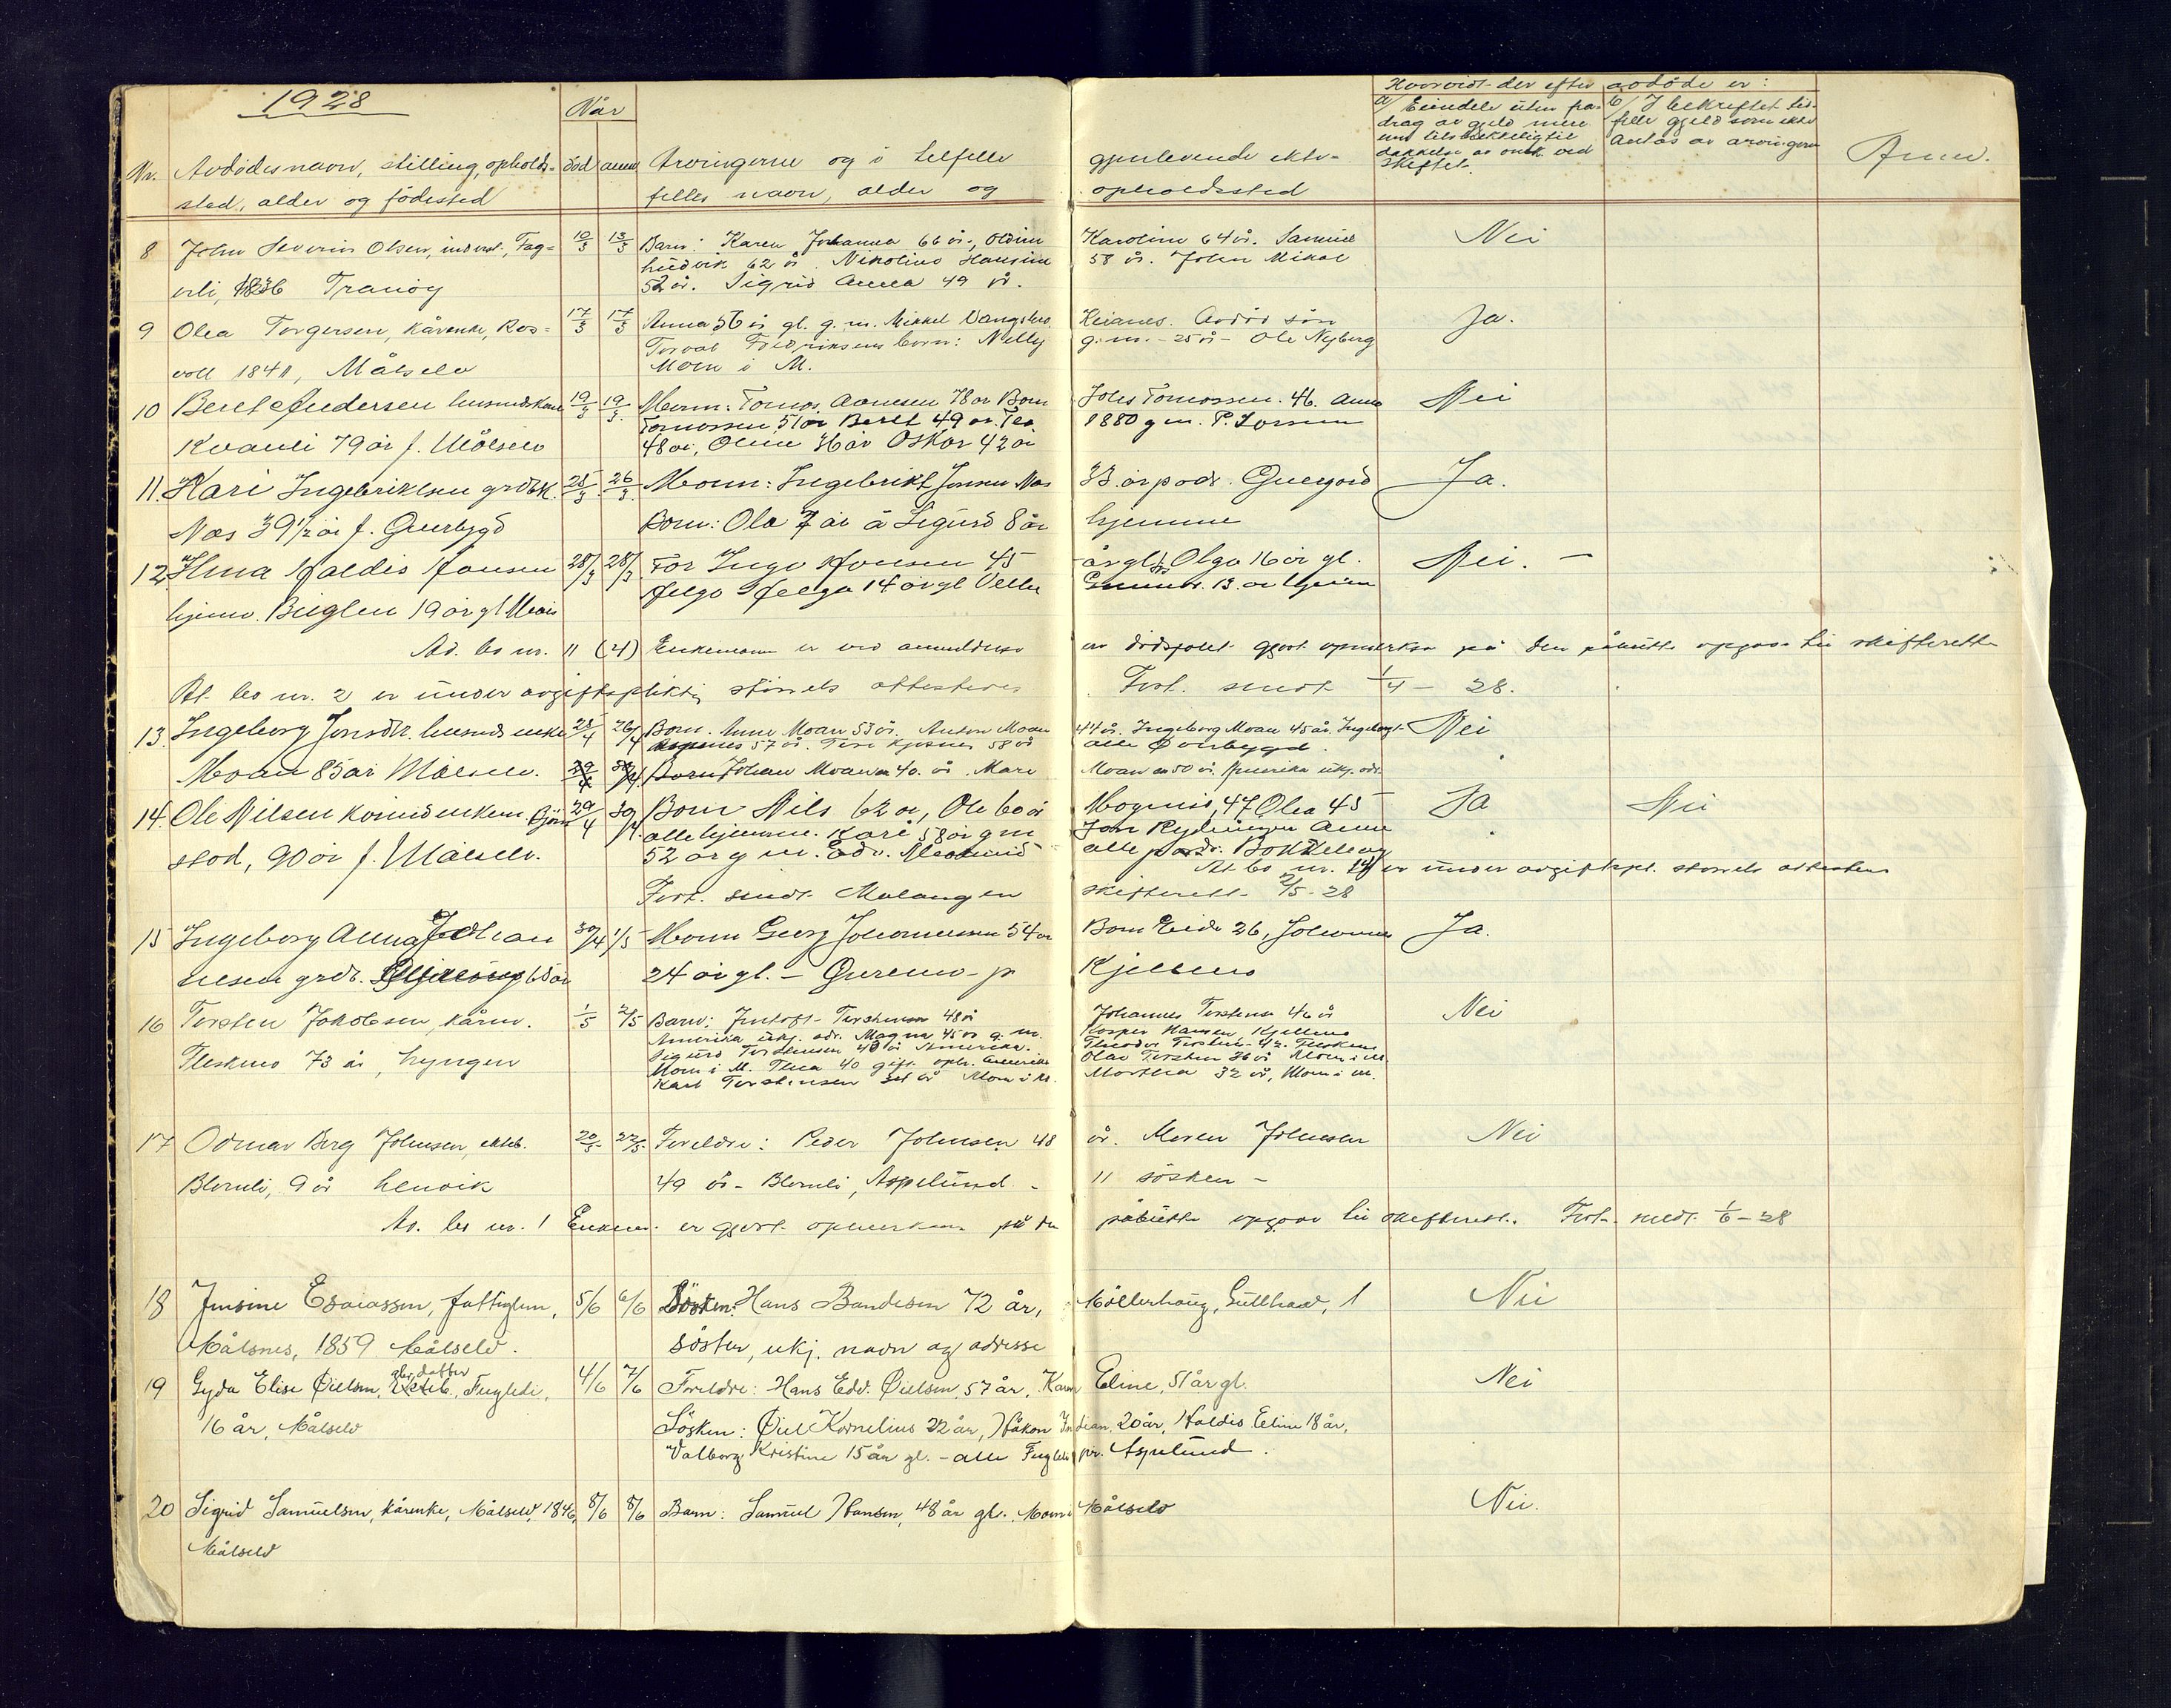 1928
Når
Hvorvidt der efter avdøde er:
a/ Eiendele uten fra- b/ I bekreftet til-
drag av gjeld mere felle gjeld som ikke
enn tilstrekkelig til Antas av arvingern
dekkelse av omk. ved
skiftet.
Nr. Avdødes navn, stilling, opholds- død anm Arvingerne og i tilfelle gjenlevende ekte- Anm.
sted, alder og fødested felles navn, alder og opholdssted
8 John Severin Olsen, inderst, Fag- 10/3 13/3 Barn: Karen Johanna 66 år, Oldine Karoline 64 år. Samuel Nei
erli, 1836 Tranøy Ludvik 62 år. Nikoline Hansine 58 år. John Mikal
52 år. Sigrid Anna 49 år.
9 Olea Torgersen, kårenke, Ros- 17/3 17/3 Anna 56 år gl. g. m. Mikkel Vangsbro Keianes. Avdød søn Ja.
voll 1841, Målselv Torval Fredriksens barn: Nelly g. m. - 25 år - Ole Nyberg
Moen i M.
10 Beret Andersen husmdskone 19/3 19/3. Mann: Tomas Arnesen 78 år Barn Johs Tomassen. 46. Anna Nei
Kvanli 79 år f. Målselv Tomassen 51 år Beret 49 år. Tea 1880 g m. P. Larssen
48 år, Oline 36 år Oskar 42 år
11. Kari Ingebriktsen grdbk. 25/3 26/3 Mann: Ingebrikt Jonsen Nes 33 år p adr. Øverbygd Ja.
Nes 39 1/2 år f. Øverbygd Barn: Ola 7 år å Sigurd 8 år hjemme
12. Alma Haldis Hansen 28/3 28/3 Far Inge Hansen 45 år gl. Olga 16 år gl. Nei. -
hjemv. Biiglen 19 år gl Helga 14 år gl 13. år hjem
Ad. bo nr. 11 (4) Enkemann er ved anmeldelse av dødsfalet gjort opmerksom på den påbudte opgave til skifteretten
At. bo nr. 2 er under avgiftspliktig størrels attesteres Fort. sendt 1/4 - 28.
13. Ingeborg Jonsdtr. husmds enke 25/4 26/4 Barn. Anne Moan 53 år. Anton Moan 44 år. Ingeborg Moan 45 år. Ingeborg Nei
57 år. Tore Kjosnes 58 år alle Øverbygd.
Moan 85 år Målselv. Johan Moan 40. år. Mari Moan 50 år. Amerika ukj. adr.
14. Ole Nilsen enkem. 29/4 30/4. Barn Nils 62 år, Ole 60 år Magnild, 47 Olea 45 Ja Nei
stad, 90 år f. Målselv. alle hjemme. Kari 58 år g m Jon Rydningen Anne
52 år g m. Edv. alle p adr.
At bo nr. 14 er under avgiftspl. størrels attesteres
Fort. sendt Malangen skifterett 2/5 - 28
15 Ingeborg Anna Johan 30/4 1/5 Mann Georg Johannessen 54 år Barn Eide 26, Johannes Ja.
nesen grdb. 65 år 24 år gl. - Øvremo p Kjellmo
16 Torsten Jakobsen kårm. 1/5 2/5 Barn: Torstensen 48 år Johannes Torstensen 46 år Nei
Fleskmo 73 år, Lyngen Amerika ukj. adr. Magna 45 år g. m. Kasper Hansen Kjellmo
Sigurd Torstensen 40 år Amerika. Theodor Torstens 42. Fleskmo
Moen i M. Thea 40 gift oph. Amerika Olav Torsten 36 år Moen i M.
Karl Torstensen 34 år Moen i M. Martha 32 år, Moen i M.
17 Odmar Berg Johnsen, ekteb. 20/5 22/5. Foreldre: Peder Johnsen 48 år. Maren Johnsen Nei
Blomli, 9 år Lenvik 49 år - Blomli, Aspelund - 11 søsken -
Ad. bo nr. 1 Enken er gjort opmerksom på den påbudte opgave til skifterett. Fort. sendt. 1/6 - 28
18 Jensine Esaiassen, fattiglem, 5/6 6/6 Søsken: Hans Bandesen 72 år, Møllerhaug, Gullhav, 1 Nei
Målsnes, 1859 Målselv. søster, ukj. navn og adresse
19 Gyda Elise Øielsen, gbr. datter, Fugleli, 4/6 7/6 Foreldre: Hans Edv. Øielsen, 57 år, Karen Eline, 51 år gl. Nei
16 år, Målselv Søsken: Øiel Kornelius 22 år, Håkon Indian, 20 år, Haldis Eline 18 år,
Valborg Kristine 15 år gl. - alle Fugleli, pr. Aspelund.
20 Sigrid Samuelsen, kårenke, Målselv, 1846, 8/6 8/6 Barn: Samuel Hansen, 48 år gl. Moen i Målselv Nei.
Målselv